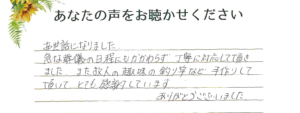 あなたの声をお聴かせください
お世話になりました
急な葬儀の日程にもかかわらず 丁寧に対応して頂き
ました。また故人の趣味の釣り竿など 手作りして
頂いて とても感謝しています
ありがとうございました